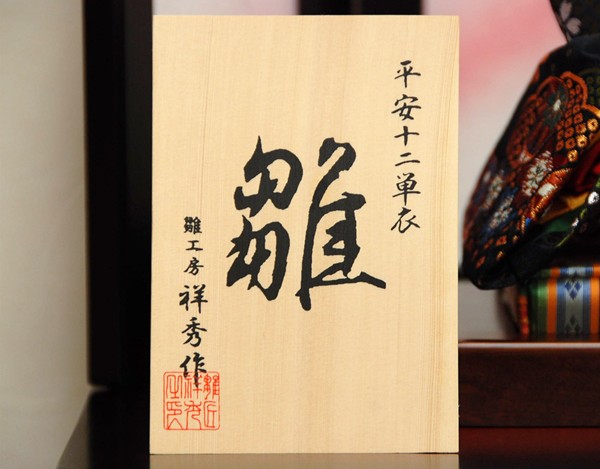 平安十二単衣
雛
雛工房 祥秀作